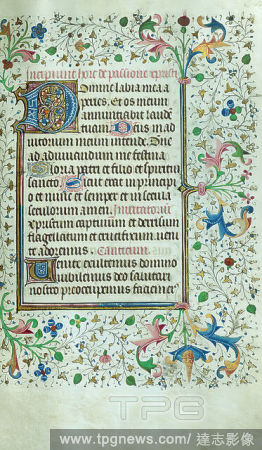 Incipiunt hore de passione
Domine labia mea a
peries. Et os meum
annuntiabit laude
tuam. Deus in ad
iutorium meum intende. Dne
ad adiuvandum me festina
Gloria patri et filio et spiritui
sancto. Sicut erat in principi
o et nunc et semper et in secula
seculorum amen. Invitato
xpristum captivum et derisum
flagellatum et crucifixum veni
te adoremus. Canticum
Venite exultemus domino
iubilemus deo salutari
nostro preoccupemus faciem
TPG
www.tpgnews.com/ 達志影像